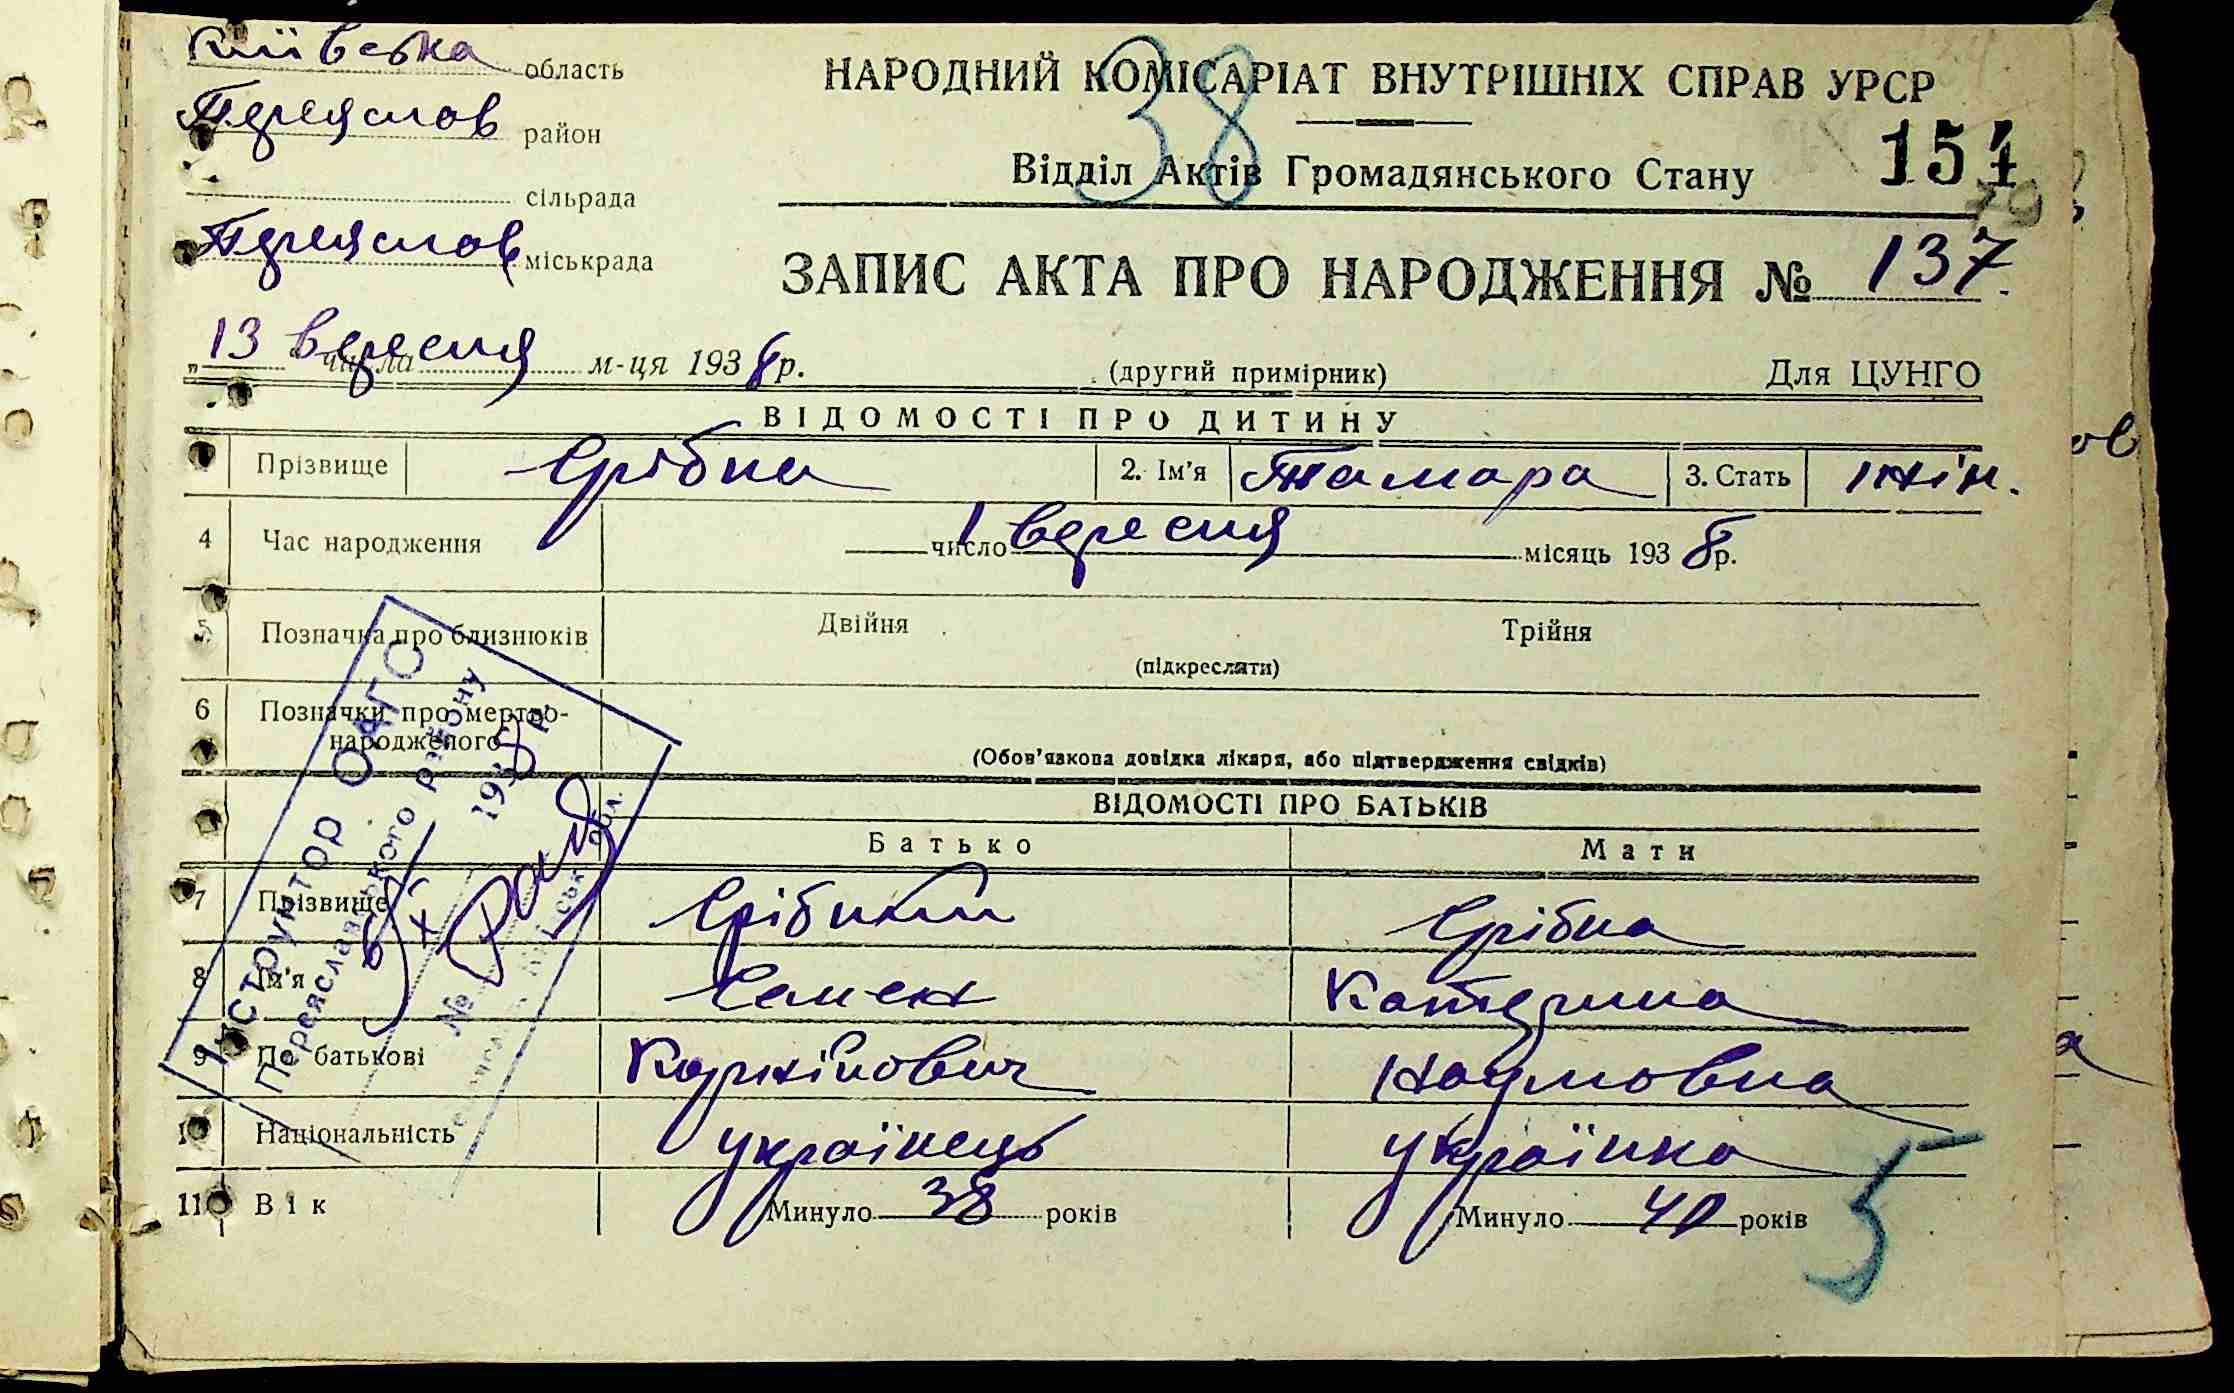 Київська область
Переяслов район
сільрада
Переяслов міськрада
НАРОДНИЙ КОМІСАРІАТ ВНУТРІШНІХ СПРАВ УРСР
38
Відділ Актів Громадянського Стану
154
79
ЗАПИС АКТА ПРО НАРОДЖЕННЯ № 137.
„13 вересня числа м-ця 1938 р.
(другий примірник)
Для ЦУНГО
ВІДОМОСТІ ПРО ДИТИНУ
Прізвище Срібна 2. Ім'я Тамара 3. Стать жін.
4 Час народження 1 число вересня місяць 1938 р.
5 Позначка про близнюків Двійня Трійня
(підкреслити)
6 Позначки про мертво-
народженого
(Обов'язкова довідка лікаря, або підтвердження свідків)
ВІДОМОСТІ ПРО БАТЬКІВ
Батько Мати
7 Прізвище Срібний Срібна
8 Ім'я Семен Катерина
9 По батькові Корнійович Наумовна
Національність українець українка
11 Вік Минуло 38 років Минуло 40 років
5
Інструктор ОАГС
Переяславського району
1938 р.
№